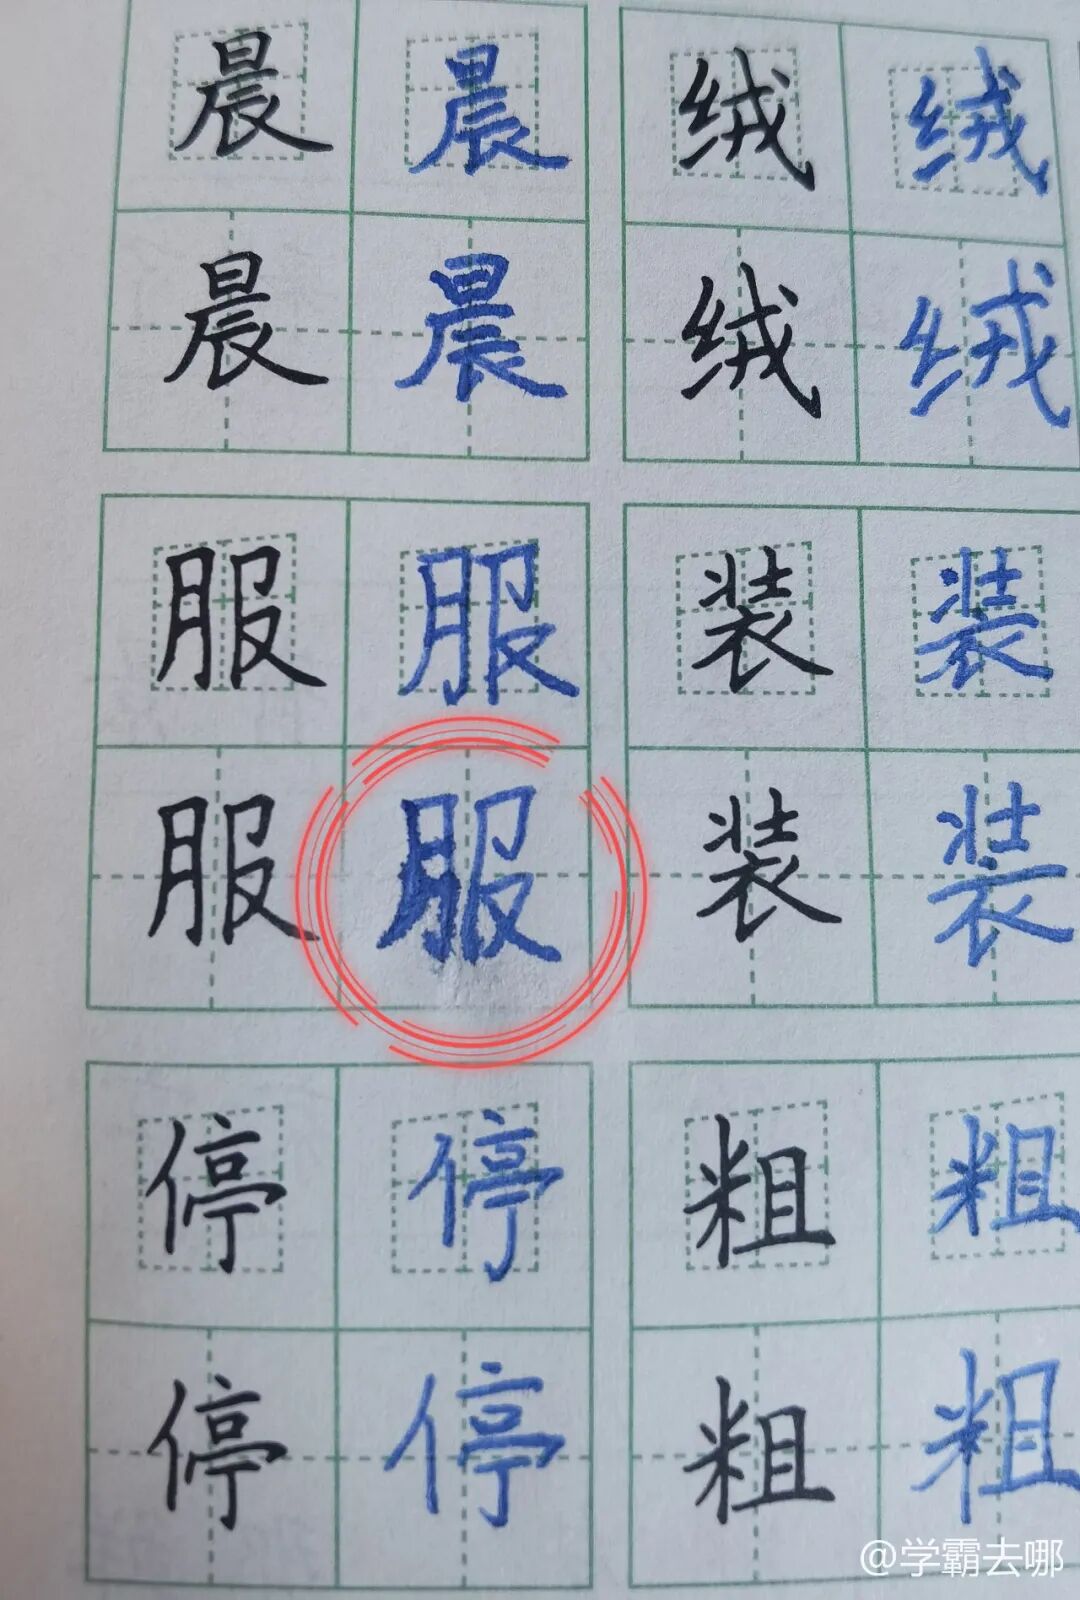 晨 晨 绒 绒
晨 晨 绒 绒
服 服 装 装
服 服 装 装
停 停 粗 粗
停 停 粗 粗
@学霸去哪